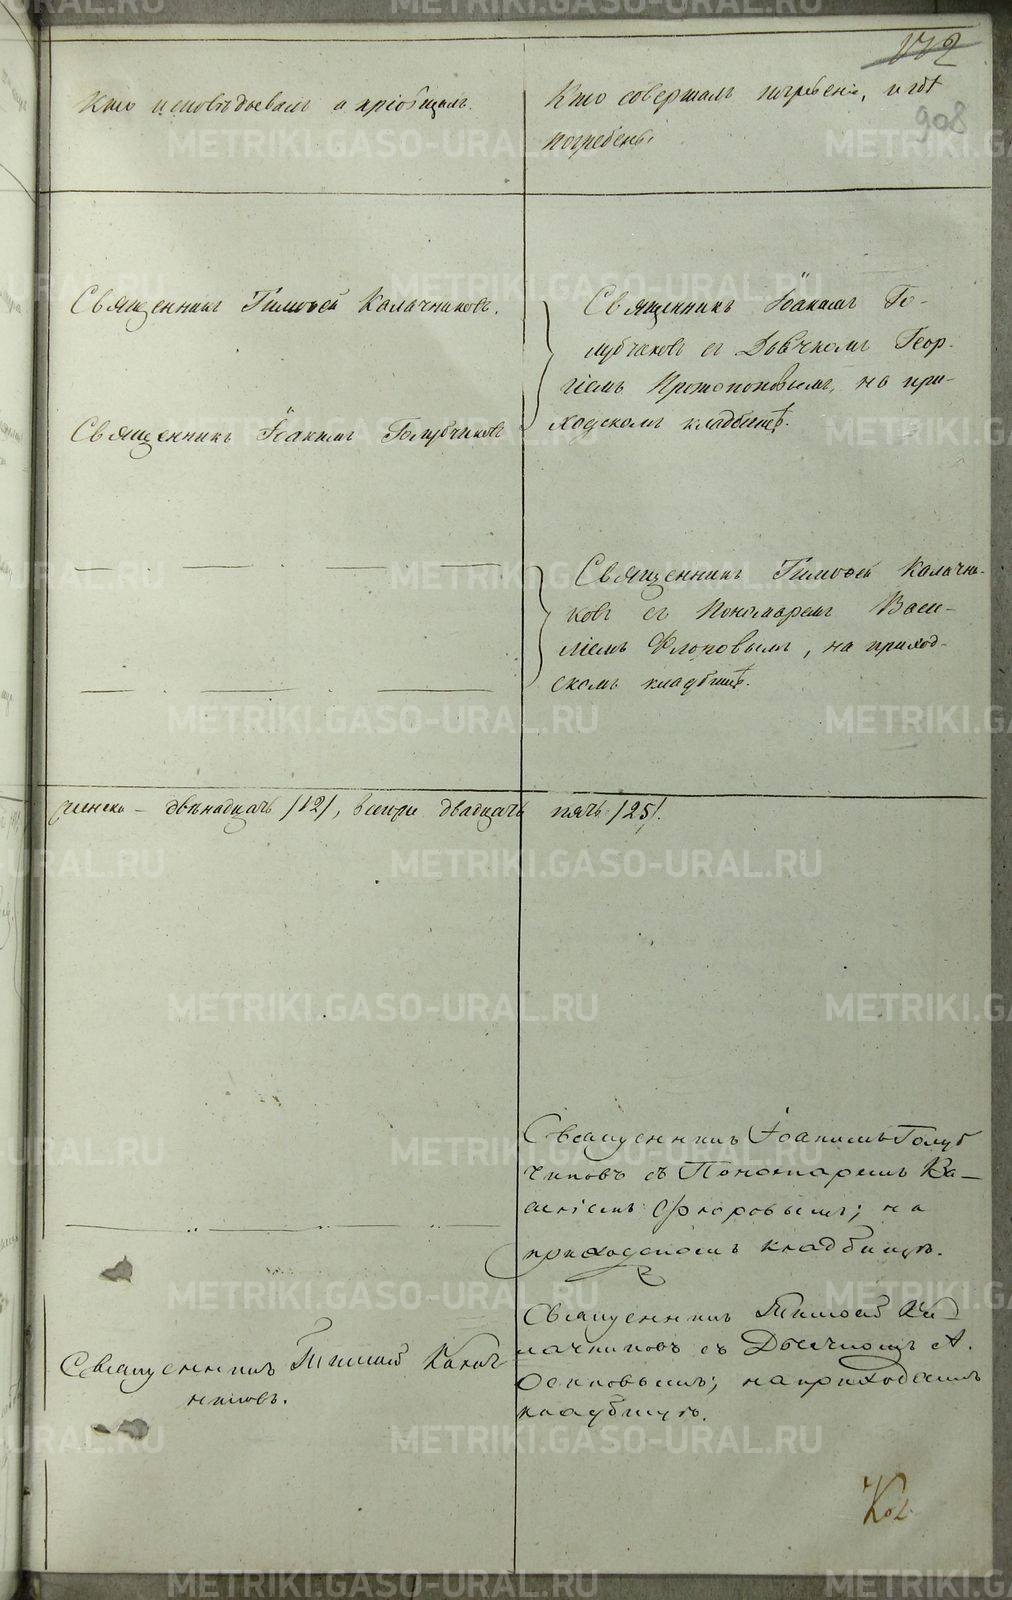 908
Кто исповѣдовалъ и пріобщалъ.
Кто совершалъ погребеніе, и гдѣ
погребены
Священникъ Тимоѳей Калачниковъ.
Священникъ Іоакимъ Голубчиковъ
Священникъ Іоакимъ Го-
лубчиковъ съ Дьячкомъ Геор-
гіемъ Протопоповымъ, на при-
ходскомъ кладбищѣ.
Священникъ Тимоѳей Калачни-
ковъ съ Пономаремъ Васи-
ліемъ Флоровымъ, на приход-
скомъ кладбищѣ.
женска - двѣнадцать /12/, всего двадцать пять /25/.
Священникъ Іоакимъ Голуб
чиковъ съ Пономаремъ Ва-
силіемъ Флоровымъ; на
приходскомъ кладбищѣ.
Священникъ Тимоѳей Калач
никовъ.
Священникъ Тимоѳей Ка-
лачниковъ съ Дьячкомъ А.
Осиповымъ; на приходскомъ
кладбищѣ.
METRIKI.GASO-URAL.RU